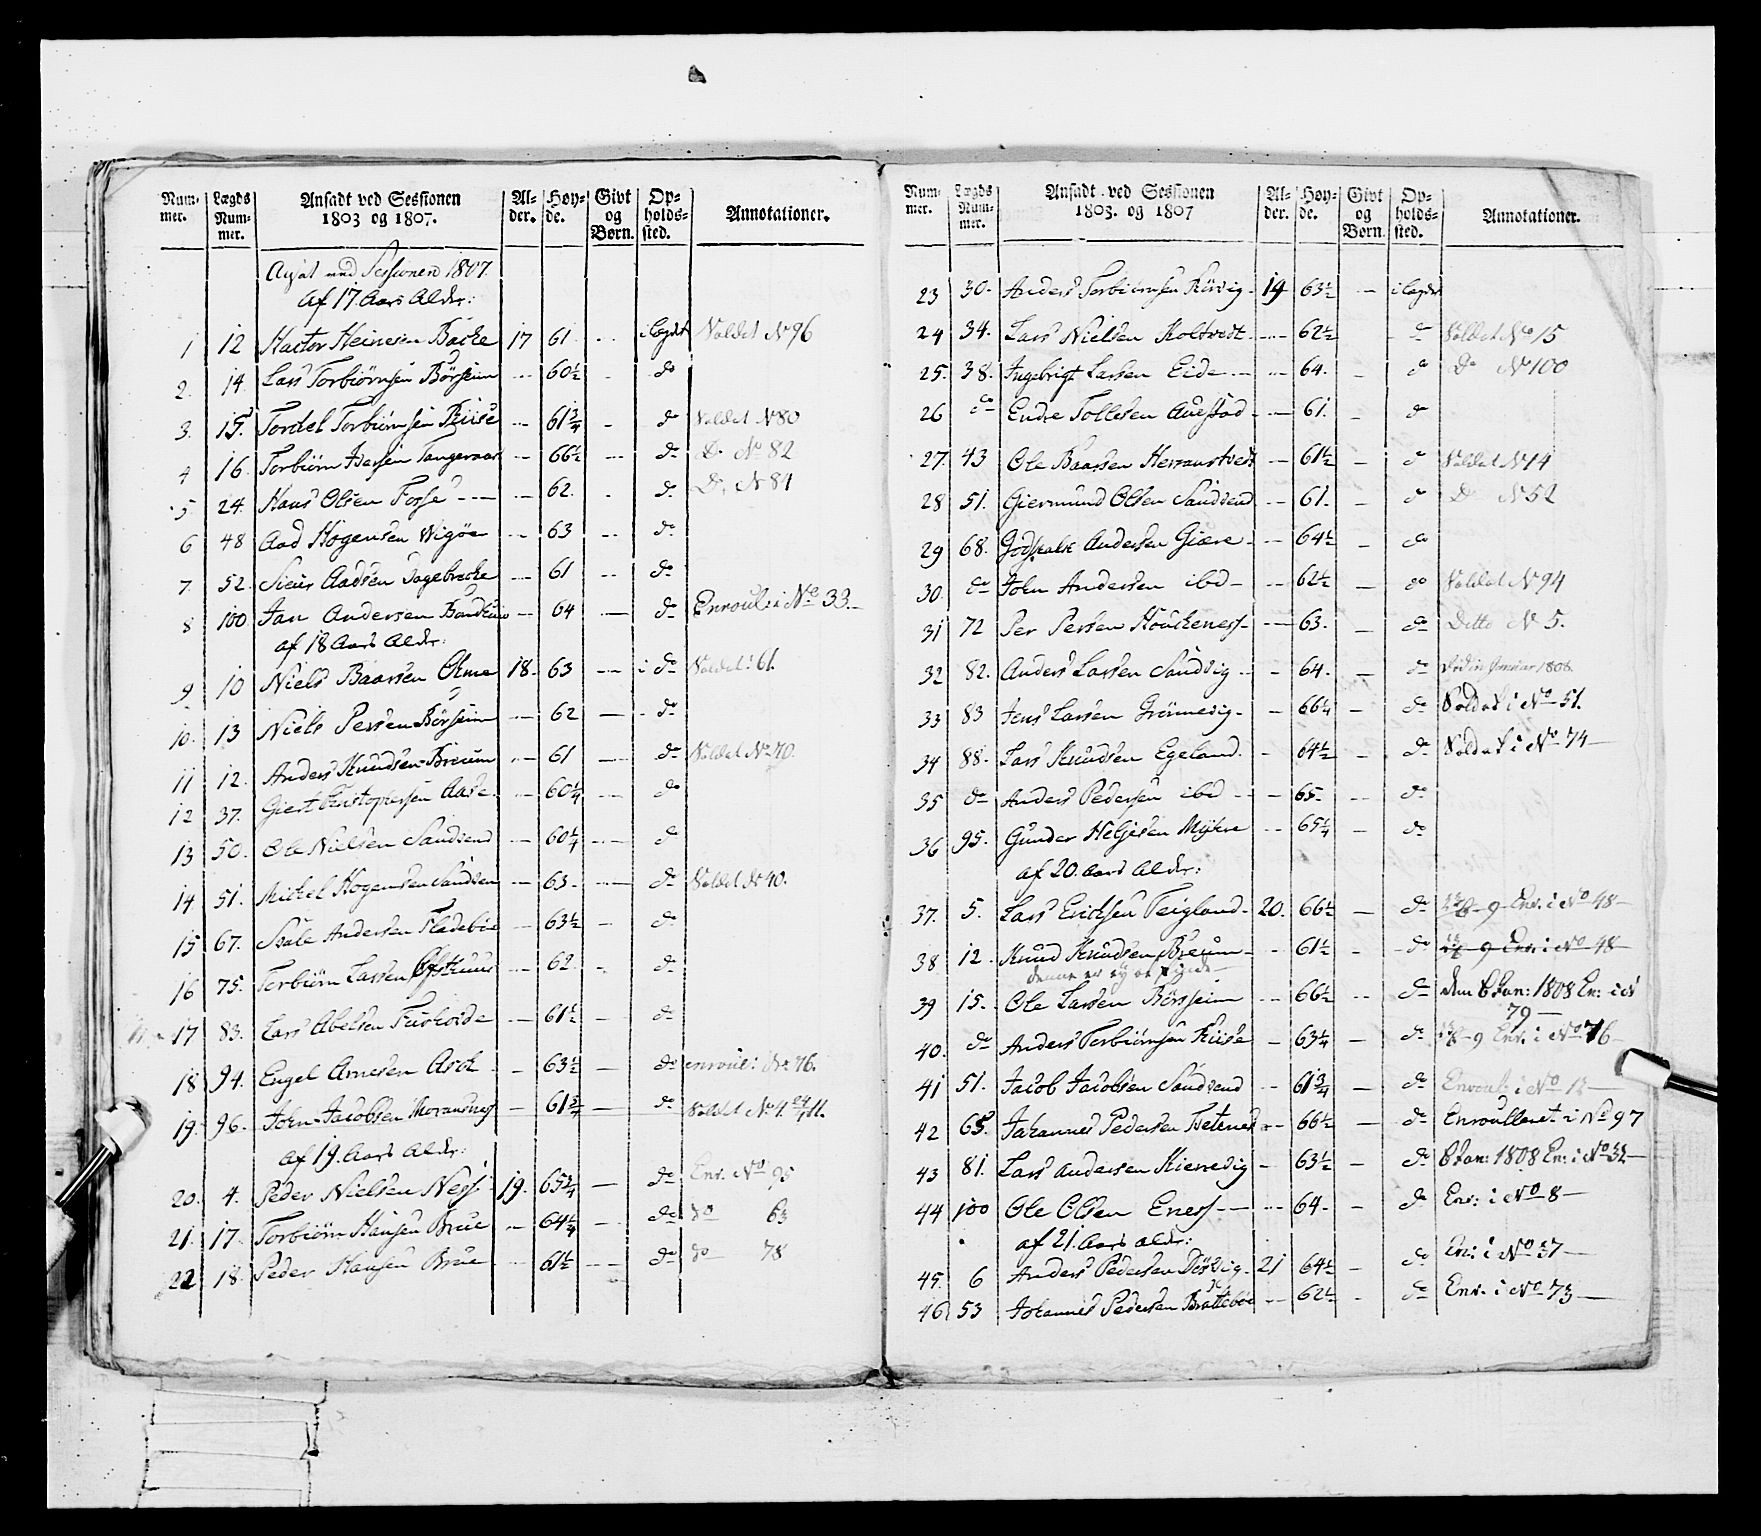 Num-mer. Lægds Num-mer. Ansadt ved Sessionen 1803 og 1807. Al-der. Høy-de. Givt og Børn. Op-holds-sted. Annotationer.
Ansat ved Sessionen 1807.
af 17. Aars Alder:
1 12 Hactor Heinesen Backe 17 61 - i Legdet Soldat No 96
2. 14 Lars Torbiørnsen Børseim - 60½ - do
3. 15. Tordel Torbiørnsen Riise - 61¾ - do Soldat No 80
4 16. Torbiørn Iversen Tangeraas - 66½ - do Do No 82
5 24. Hans Olsen Fosse - 62. - do Do No 84
6 48 Aad Hogensen Wigøe - 63 - do
7. 52. Siur Aadsen Tagebrecke - 61 - do
8 100 Jan Andersen - 64 - do Enroul: i No 33.-
af 18 Aars Alder:
9 10 Niels Baarsen Olme 18. 63 - i do Soldat: 61.
10. 13 Niels Persen Børseim - 62 - do
11 12. Anders Knudsen Breum - 61 - do Soldat No 70.
12 37. Giert Christophersen Aase - 60¼ - do
13 50. Ole Nielsen Sandvend - 60¼ - do
14 51. Mickel Hogensen Sandven - 63. - do Soldat No 40.
15 67. Siale Andersen Fladebøe - 63½ - do
16 75. Torbiørn Larsen - 62. - do
17 83. Lars Abelsen Furhvide - 61½ - do
18 94. Engel Arnesen Arck - 63½ - do enroul: No 76.
19. 96. John Jacobsen - 61¾ - do Soldat No 4.
af 19. Aars Alder:
20. 4. Peder Nielsen Ness 19. 65¾ - do Enr. No 95
21. 17. Torbiørn Hansen Brue - 64¼ - do do 63
22 18. Peder Hansen Brue - 61½ - do do 78
Num-mer. Lægds Num-mer. Ansadt ved Sessionen 1803. og 1807 Al-der. Høy-de. Givt og Børn. Op-holds-sted. Annotationer.
23 30. Anders Torbiørnsen 19 63½ - i Legdet
24 34. Lars Nielsen Holtvedt - 62½ - do Soldat No 15
25. 38. Ingebrigt Larsen Eide - 64. - do Do No 100
26 do Endre Tollesen Auestad - 61. - do
27. 43 Ole Baarsen - 61½ - do Soldat No 14
28 51. Giermund Olsen Sandvend - 61. - do Do No 52
29 68. Godskalk Andersen Giære - 64½ - do
30. do John Andersen ibd - 62½ - do Soldat No 94
31 72 Per Persen - 63. - do Ditto No 5.
32 82. Anders Larsen Sandvig - 64. - do 1808.
33 83 Jens Larsen Grønnevig - 66¼ - do Soldat i No 51.
34 88. Lars Knudsen Egeland - 64½ - do Soldat i No 74
35 do Anders Pedersen ibd - 65. - do
36 95. Gunder Helgesen Myhre - 65¼ - do
af 20. Aars Alder:
37. 5. Lars Ericksen Teigland 20. 66½ - do Enr. i No 48
38 12. Knud Knudsen Breum - 61½ - do Enr. i No 48
denne er ey at finde
39 15. Ole Larsen Børseim - 66½ - do dem 6 Jan: 1808 En: i No
79
40. do Anders Torbiørnsen Riise - 63¼ - do Enr. i No 76
41 51. Jacob Jacobsen Sandvend - 61¾ - do Enroul: i No 12
42 65. Johannes Pedersen - 66½ - do Enroulleret i No 97
43 81. Lars Andersen Kierrevig - 63½ - do 6 Jan: 1808 En: i No 32
44 100 Ole Olsen Eness - 64. - do Enr: i No 8
af 21. Aars Alder:
45. 6 Anders Pedersen 21 64½ - do En: i No 37
46 53 Johannes Pedersen Brattebøe - 62½ - do Enr. i No 73